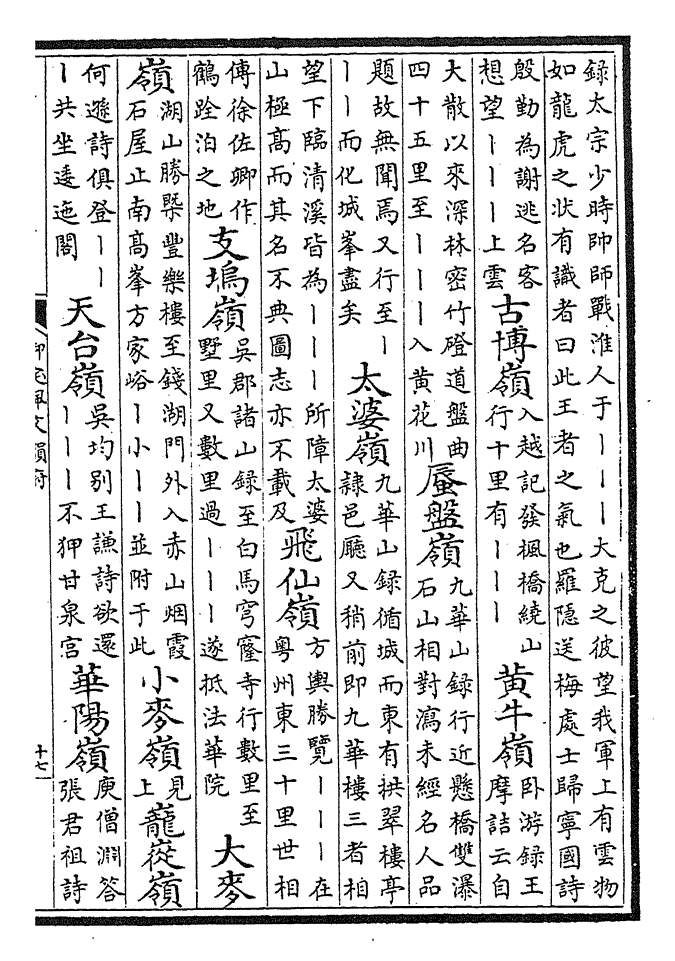 録太宗少時帥師戰淮人于丨丨丨大克之彼望我軍上有雲物
如龍虎之状有識者曰此王者之氣也羅隠送梅處士歸寧國詩
殷勤為謝逃名客
想望丨丨丨上雲
古博嶺
入越記發楓橋繞山
行十里有丨丨丨
黄牛嶺
卧游録王
摩詰云自
大散以來深林密竹磴道盤曲
四十五里至丨丨丨入黄花川
蜃盤嶺
九華山録行近懸橋雙瀑
石山相對瀉未經名人品
題故無聞焉又行至丨
丨丨而化城峯盡矣
太婆嶺
九華山録循城而東有拱翠樓亭
隷邑廳又稍前即九華樓三者相
望下臨清溪皆為丨丨丨所障太婆
山極高而其名不典圖志亦不載及
飛仙嶺
方輿勝覽丨丨丨在
粤州東三十里世相
傳徐佐卿作
鶴跧泊之地
支塢嶺
吳郡諸山録至白馬穹窿寺行數里至
墅里又數里過丨丨丨遂抵法華院
大麥
嶺
湖山勝槩豐樂樓至錢湖門外入赤山烟霞
石屋止南高峯方家峪丨小丨丨並附于此
小麥嶺
見
上
巃嵸嶺
何遜詩俱登丨丨
丨共坐逶迤閣
天台嶺
吳均别王謙詩欲還
丨丨丨不狎甘泉宫
華陽嶺
庾僧淵答
張君祖詩
十七